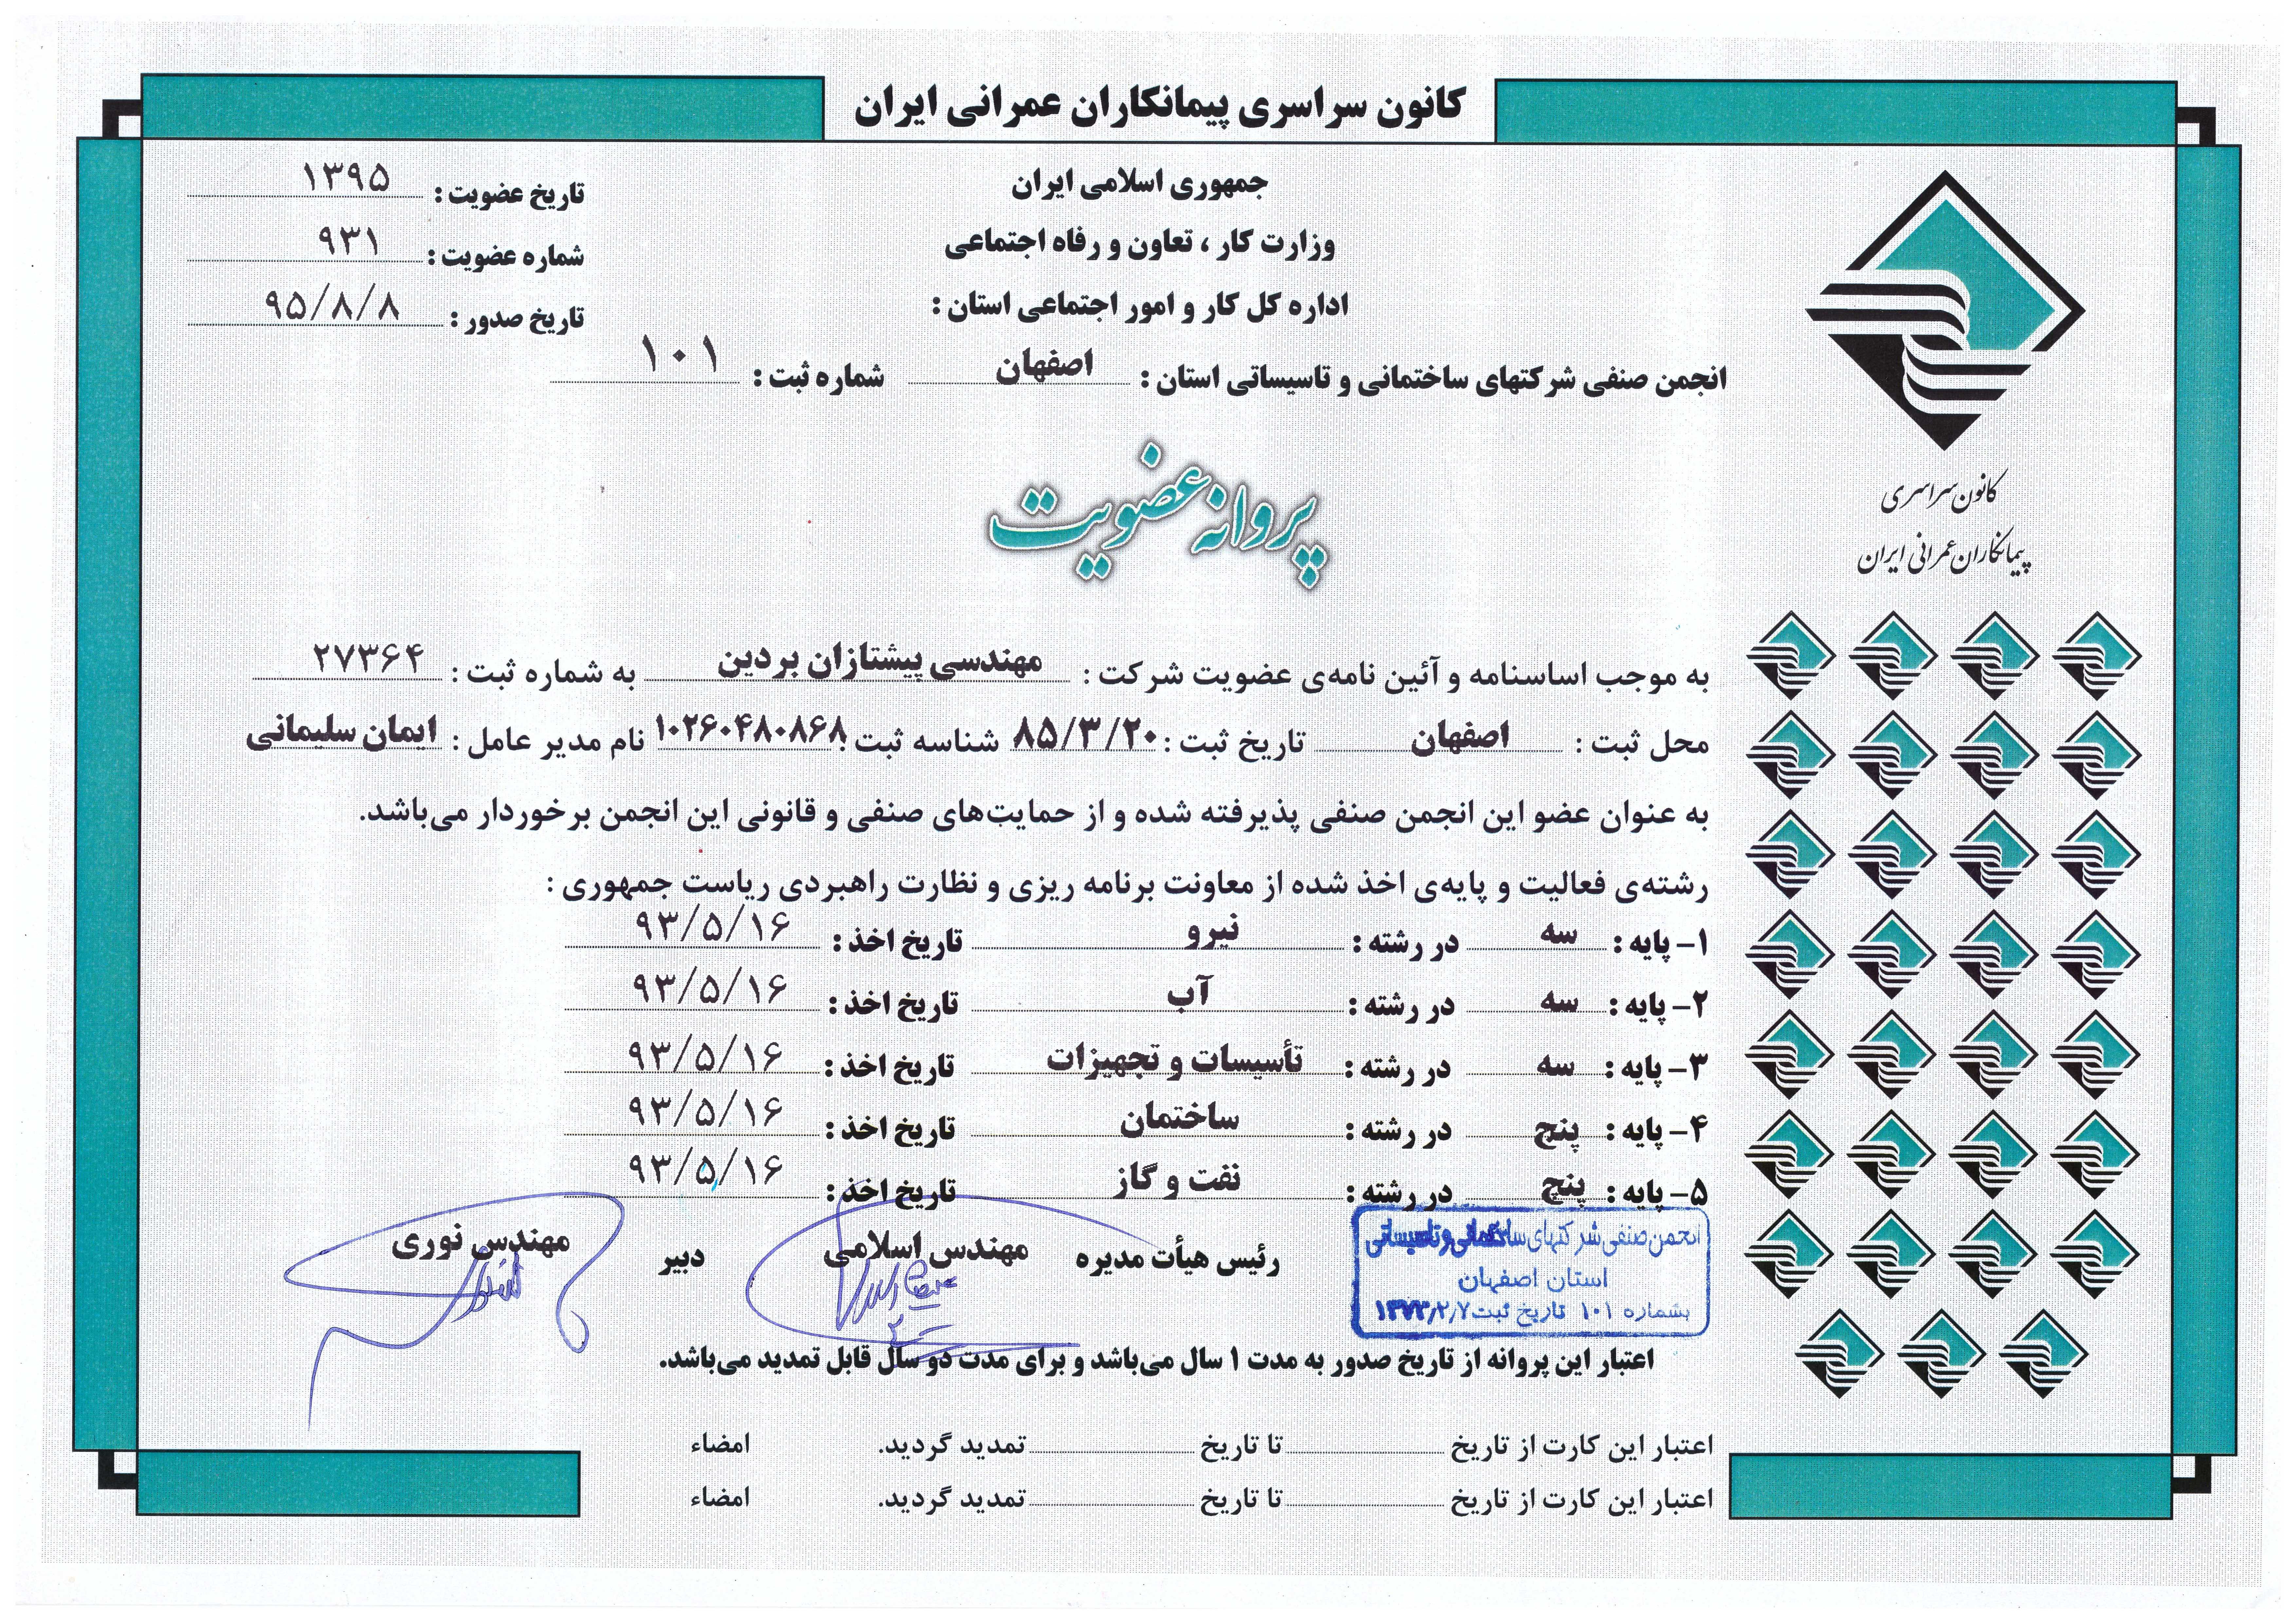 کانون سراسری پیمانکاران عمرانی ایران
جمهوری اسلامی ایران
وزارت کار ، تعاون و رفاه اجتماعی
اداره کل کار و امور اجتماعی استان :
انجمن صنفی شرکتهای ساختمانی و تاسیساتی استان : اصفهان شماره ثبت : ۱۰۱
تاریخ عضویت : ۱۳۹۵
شماره عضویت : ۹۳۱
تاریخ صدور : ۹۵/۸/۸
کانون سراسری
پیمانکاران عمرانی ایران
پروانه عضویت
به موجب اساسنامه و آئین نامه‌ی عضویت شرکت : مهندسی پیشتازان بردین به شماره ثبت : ۲۷۳۶۴
محل ثبت : اصفهان تاریخ ثبت : ۸۵/۳/۲۰ شناسه ثبت : ۱۰۲۶۰۴۸۰۸۶۸ نام مدیر عامل : ایمان سلیمانی
به عنوان عضو این انجمن صنفی پذیرفته شده و از حمایت‌های صنفی و قانونی این انجمن برخوردار می‌باشد.
رشته‌ی فعالیت و پایه‌ی اخذ شده از معاونت برنامه ریزی و نظارت راهبردی ریاست جمهوری :
۱- پایه : سه در رشته : نیرو تاریخ اخذ : ۹۳/۵/۱۶
۲- پایه : سه در رشته : آب تاریخ اخذ : ۹۳/۵/۱۶
۳- پایه : سه در رشته : تأسیسات و تجهیزات تاریخ اخذ : ۹۳/۵/۱۶
۴- پایه : پنج در رشته : ساختمان تاریخ اخذ : ۹۳/۵/۱۶
۵- پایه : پنج در رشته : نفت و گاز تاریخ اخذ : ۹۳/۵/۱۶
انجمن صنفی شرکتهای ساختمانی و تاسیساتی
استان اصفهان
بشماره ۱۰۱ تاریخ ثبت ۱۳۷۳/۲/۷
رئیس هیأت مدیره مهندس اسلامی دبیر مهندس نوری
اعتبار این پروانه از تاریخ صدور به مدت ۱ سال می‌باشد و برای مدت دو سال قابل تمدید می‌باشد.
اعتبار این کارت از تاریخ تا تاریخ تمدید گردید. امضاء
اعتبار این کارت از تاریخ تا تاریخ تمدید گردید. امضاء